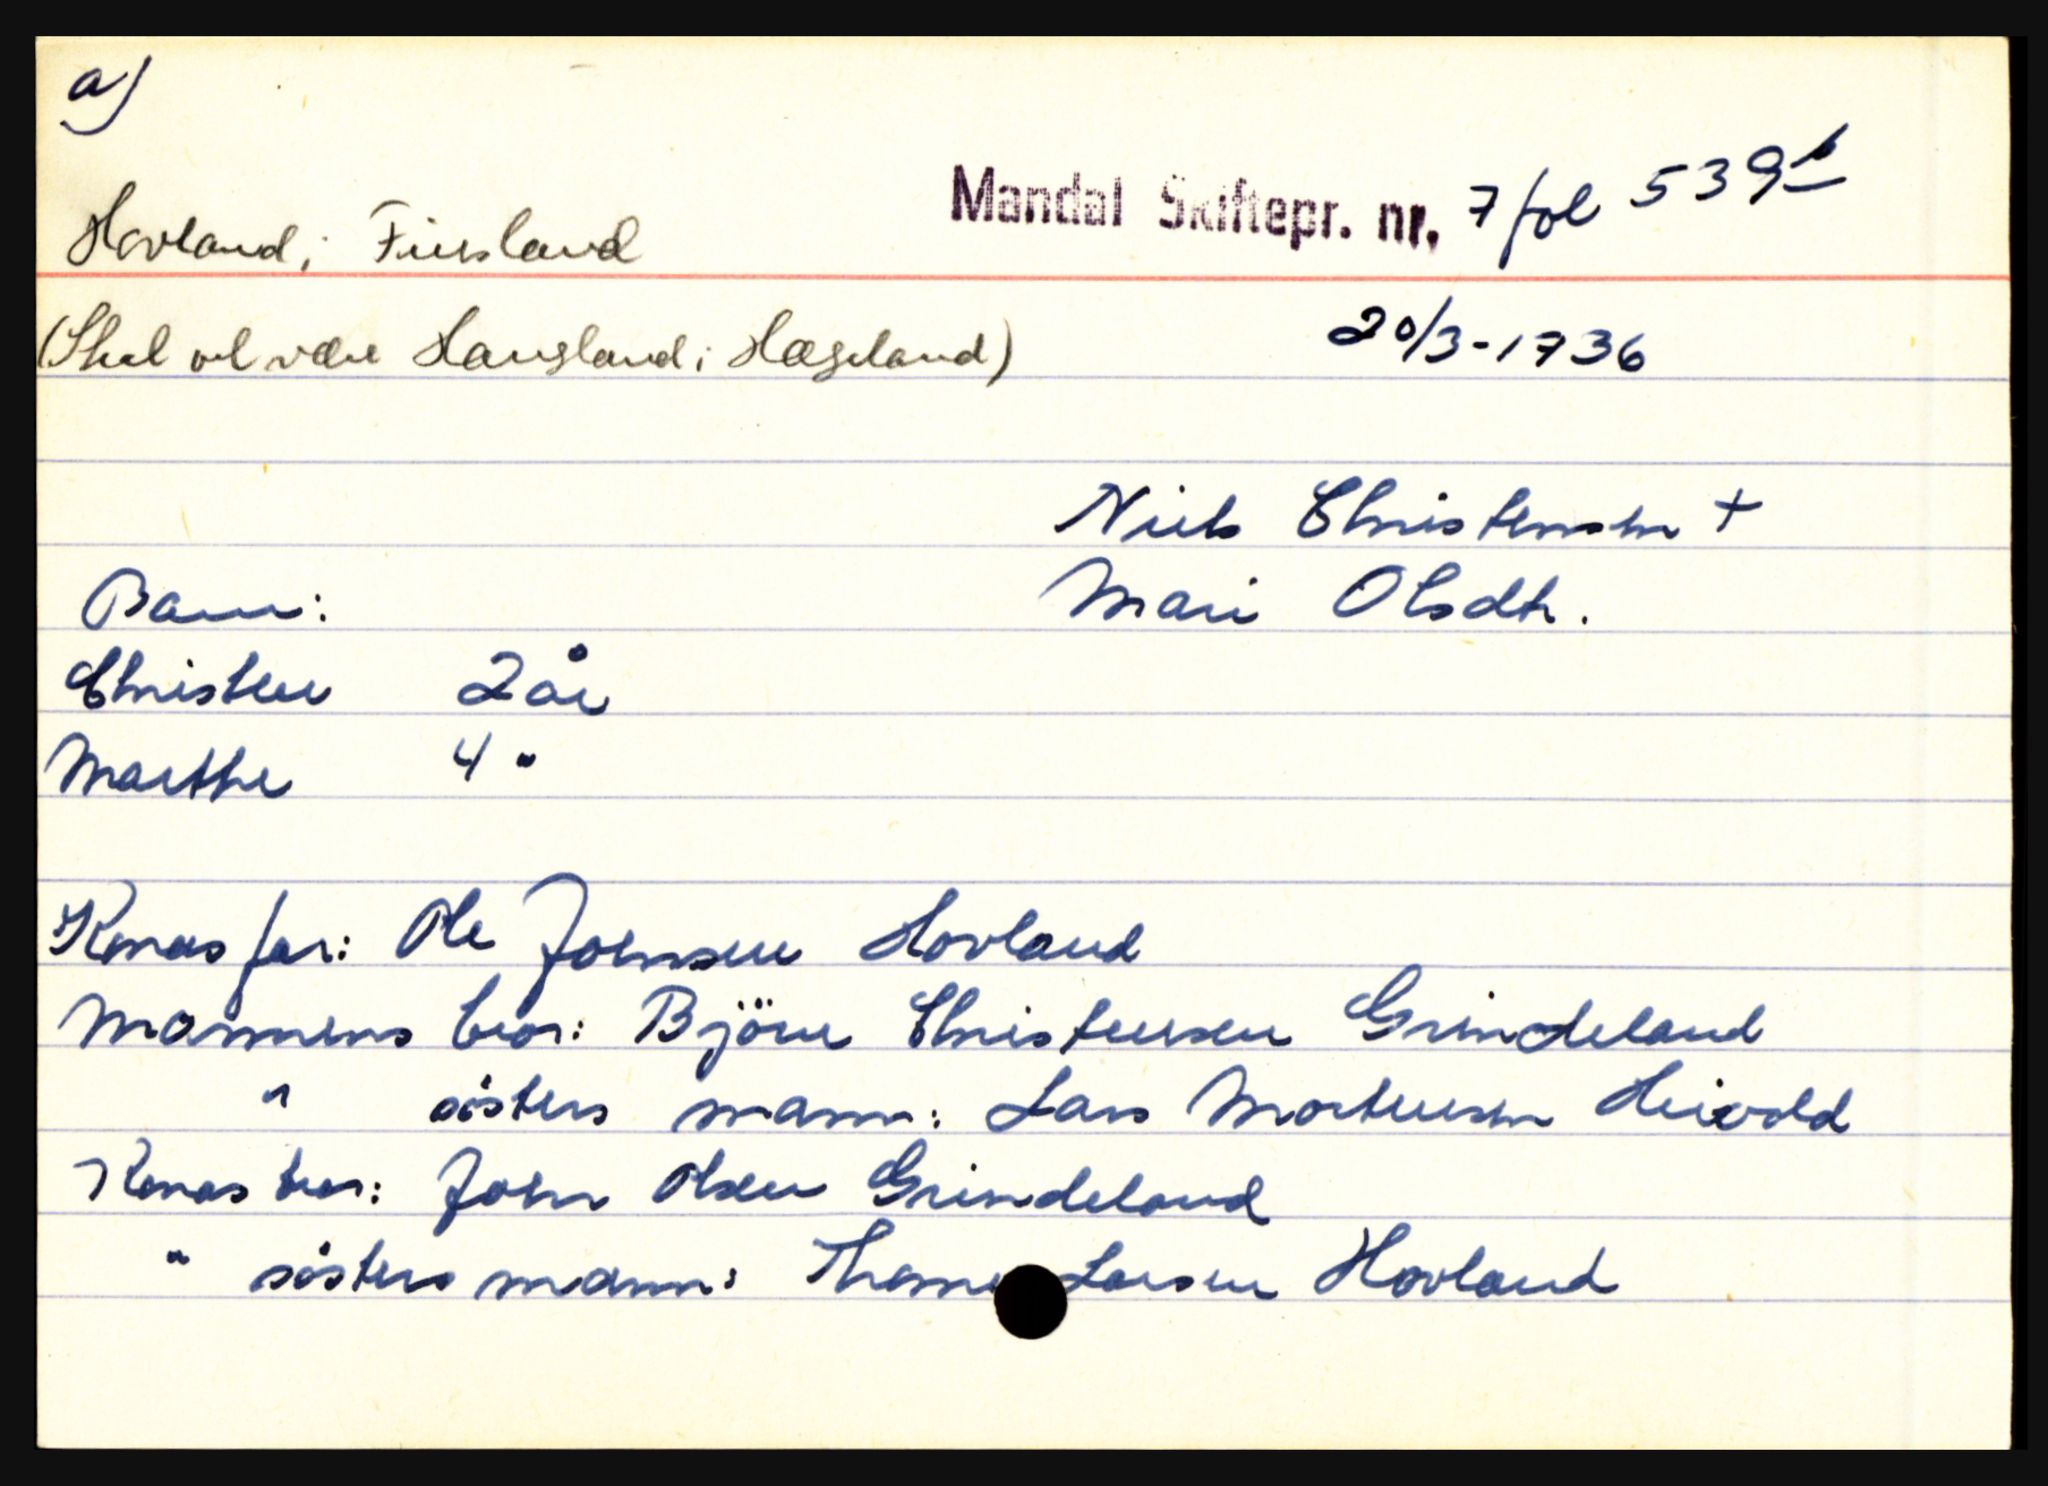 a)
Mandal Skiftepr. nr. 7 fol 539 b
Hovland, Finsland
(Skal vel være Haugland i Hægeland)
20/3-1736
Niels Christensen +
Barn: Mari Olsdtr.
Christen 2 år
Marthe 4 "
Konas far: Ole Johnsen Hovland
Mannens bror: Björn Christensen Grindeland
" sösters mann: Lars Mortensen Heivold
Konas bror: John Olsen Grindeland
" sösters mann: Larsen Hovland